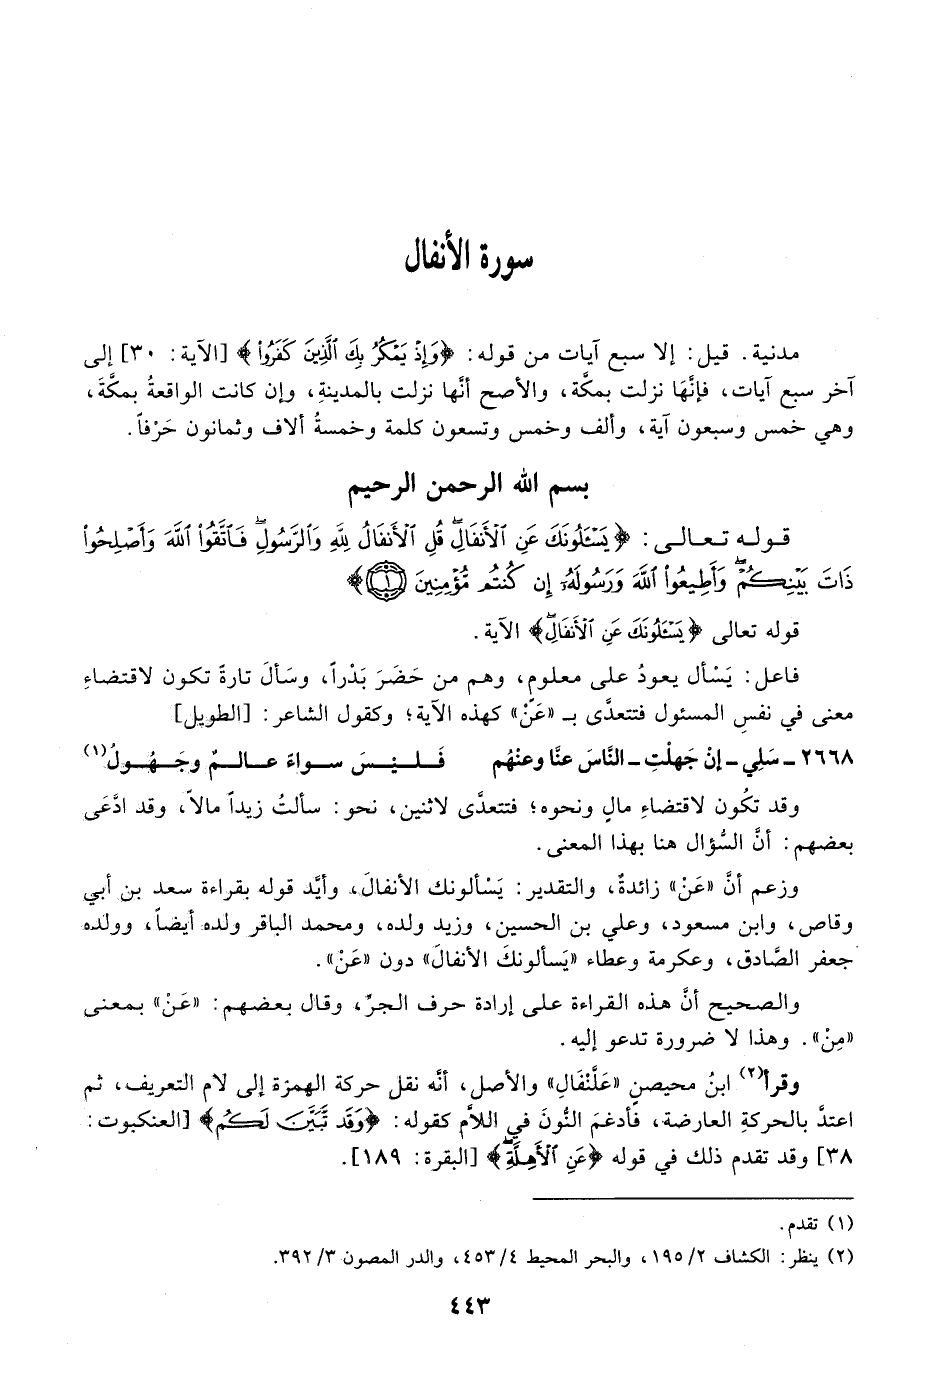 سورة الأنفال
مدنية. قيل: إلا سبع آيات من قوله: ﴿وَإِذْ يَمْكُرُ بِكَ ٱلَّذِينَ كَفَرُوا۟﴾ [الآية: ٣٠] إلى
آخر سبع آيات، فإنَّها نزلت بمكَّة، والأصح أنَّها نزلت بالمدينةِ، وإن كانت الواقعةُ بمكَّةَ،
وهي خمس وسبعون آية، وألف وخمس وتسعون كلمة وخمسةُ ألاف وثمانون حَرْفاً.
بسم الله الرحمن الرحيم
قوله تعالى: ﴿يَسْـَٔلُونَكَ عَنِ ٱلْأَنفَالِۖ قُلِ ٱلْأَنفَالُ لِلَّهِ وَٱلرَّسُولِۖ فَٱتَّقُوا۟ ٱللَّهَ وَأَصْلِحُوا۟
ذَاتَ بَيْنِكُمْۖ وَأَطِيعُوا۟ ٱللَّهَ وَرَسُولَهُۥٓ إِن كُنتُم مُّؤْمِنِينَ ١﴾
قوله تعالى ﴿يَسْـَٔلُونَكَ عَنِ ٱلْأَنفَالِۖ﴾ الآية.
فاعل: يَسْأل يعودُ على معلومٍ، وهم من حَضَرَ بَدْراً، وسَألَ تارةً تكون لاقتضاءِ
معنى في نفسِ المسئول فتتعدَّى بـ «عَنْ» كهذه الآية؛ وكقول الشاعر: [الطويل]
٢٦٦٨ ـ سَلِي ـ إنْ جَهلْتِ ـ النَّاسَ عنَّا وعنْهُم فَلَيْسَ سواءً عالمٌ وجَهُولُ(١)
وقد تكُون لاقتضاءِ مالٍ ونحوه؛ فتتعدَّى لاثنين، نحو: سألتُ زيداً مالاً، وقد ادَّعَى
بعضهم: أنَّ السُّؤال هنا بهذا المعنى.
وزعم أنَّ «عَنْ» زائدةٌ، والتقدير: يَسْألونك الأنفالَ، وأيَّد قوله بقراءة سعد بن أبي
وقاص، وابن مسعود، وعلي بن الحسين، وزيد ولده، ومحمد الباقر ولده أيضاً، وولده
جعفر الصَّادق، وعكرمة وعطاء «يَسألونكَ الأنفالَ» دون «عَنْ».
والصحيح أنَّ هذه القراءة على إرادة حرف الجرِّ، وقال بعضهم: «عَنْ» بمعنى
«مِنْ». وهذا لا ضرورة تدعو إليه.
وقرأ(٢) ابنُ محيصنٍ «عَلَّنْفَالِ» والأصل، أنَّه نقل حركة الهمزة إلى لام التعريف، ثم
اعتدَّ بالحركةِ العارضة، فأدغمَ النُّونَ في اللاَّم كقوله: ﴿وَقَد تَّبَيَّنَ لَكُم﴾ [العنكبوت:
٣٨] وقد تقدم ذلك في قوله ﴿عَنِ ٱلْأَهِلَّةِۖ﴾ [البقرة: ١٨٩].
(١) تقدم.
(٢) ينظر: الكشاف ١٩٥/٢، والبحر المحيط ٤٥٣/٤، والدر المصون ٣٩٢/٣.
٤٤٣